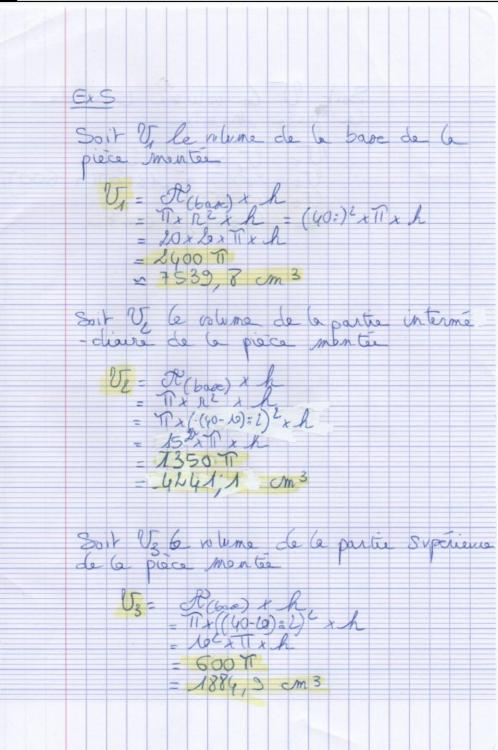 Ex 5
Soit V₁ le volume de la base de la
pièce montée
V₁ = A(base) × h
= π × r² × h = (40÷)² × π × h
= 20 × 20 × π × h
= 2400 π
≈ 7539,8 cm³
Soit V₂ le volume de la partie intermé
-diaire de la pièce montée
V₂ = A(base) × h
= π × r² × h
= π × ((40-10)÷2)² × h
= 15² × π × h
= 1350 π
= 4241,1 cm³
Soit V₃ le volume de la partie supérieure
de la pièce montée
V₃ = A(base) × h
= π × ((40-20)÷2)² × h
= 10² × π × h
= 600 π
= 1884,9 cm³